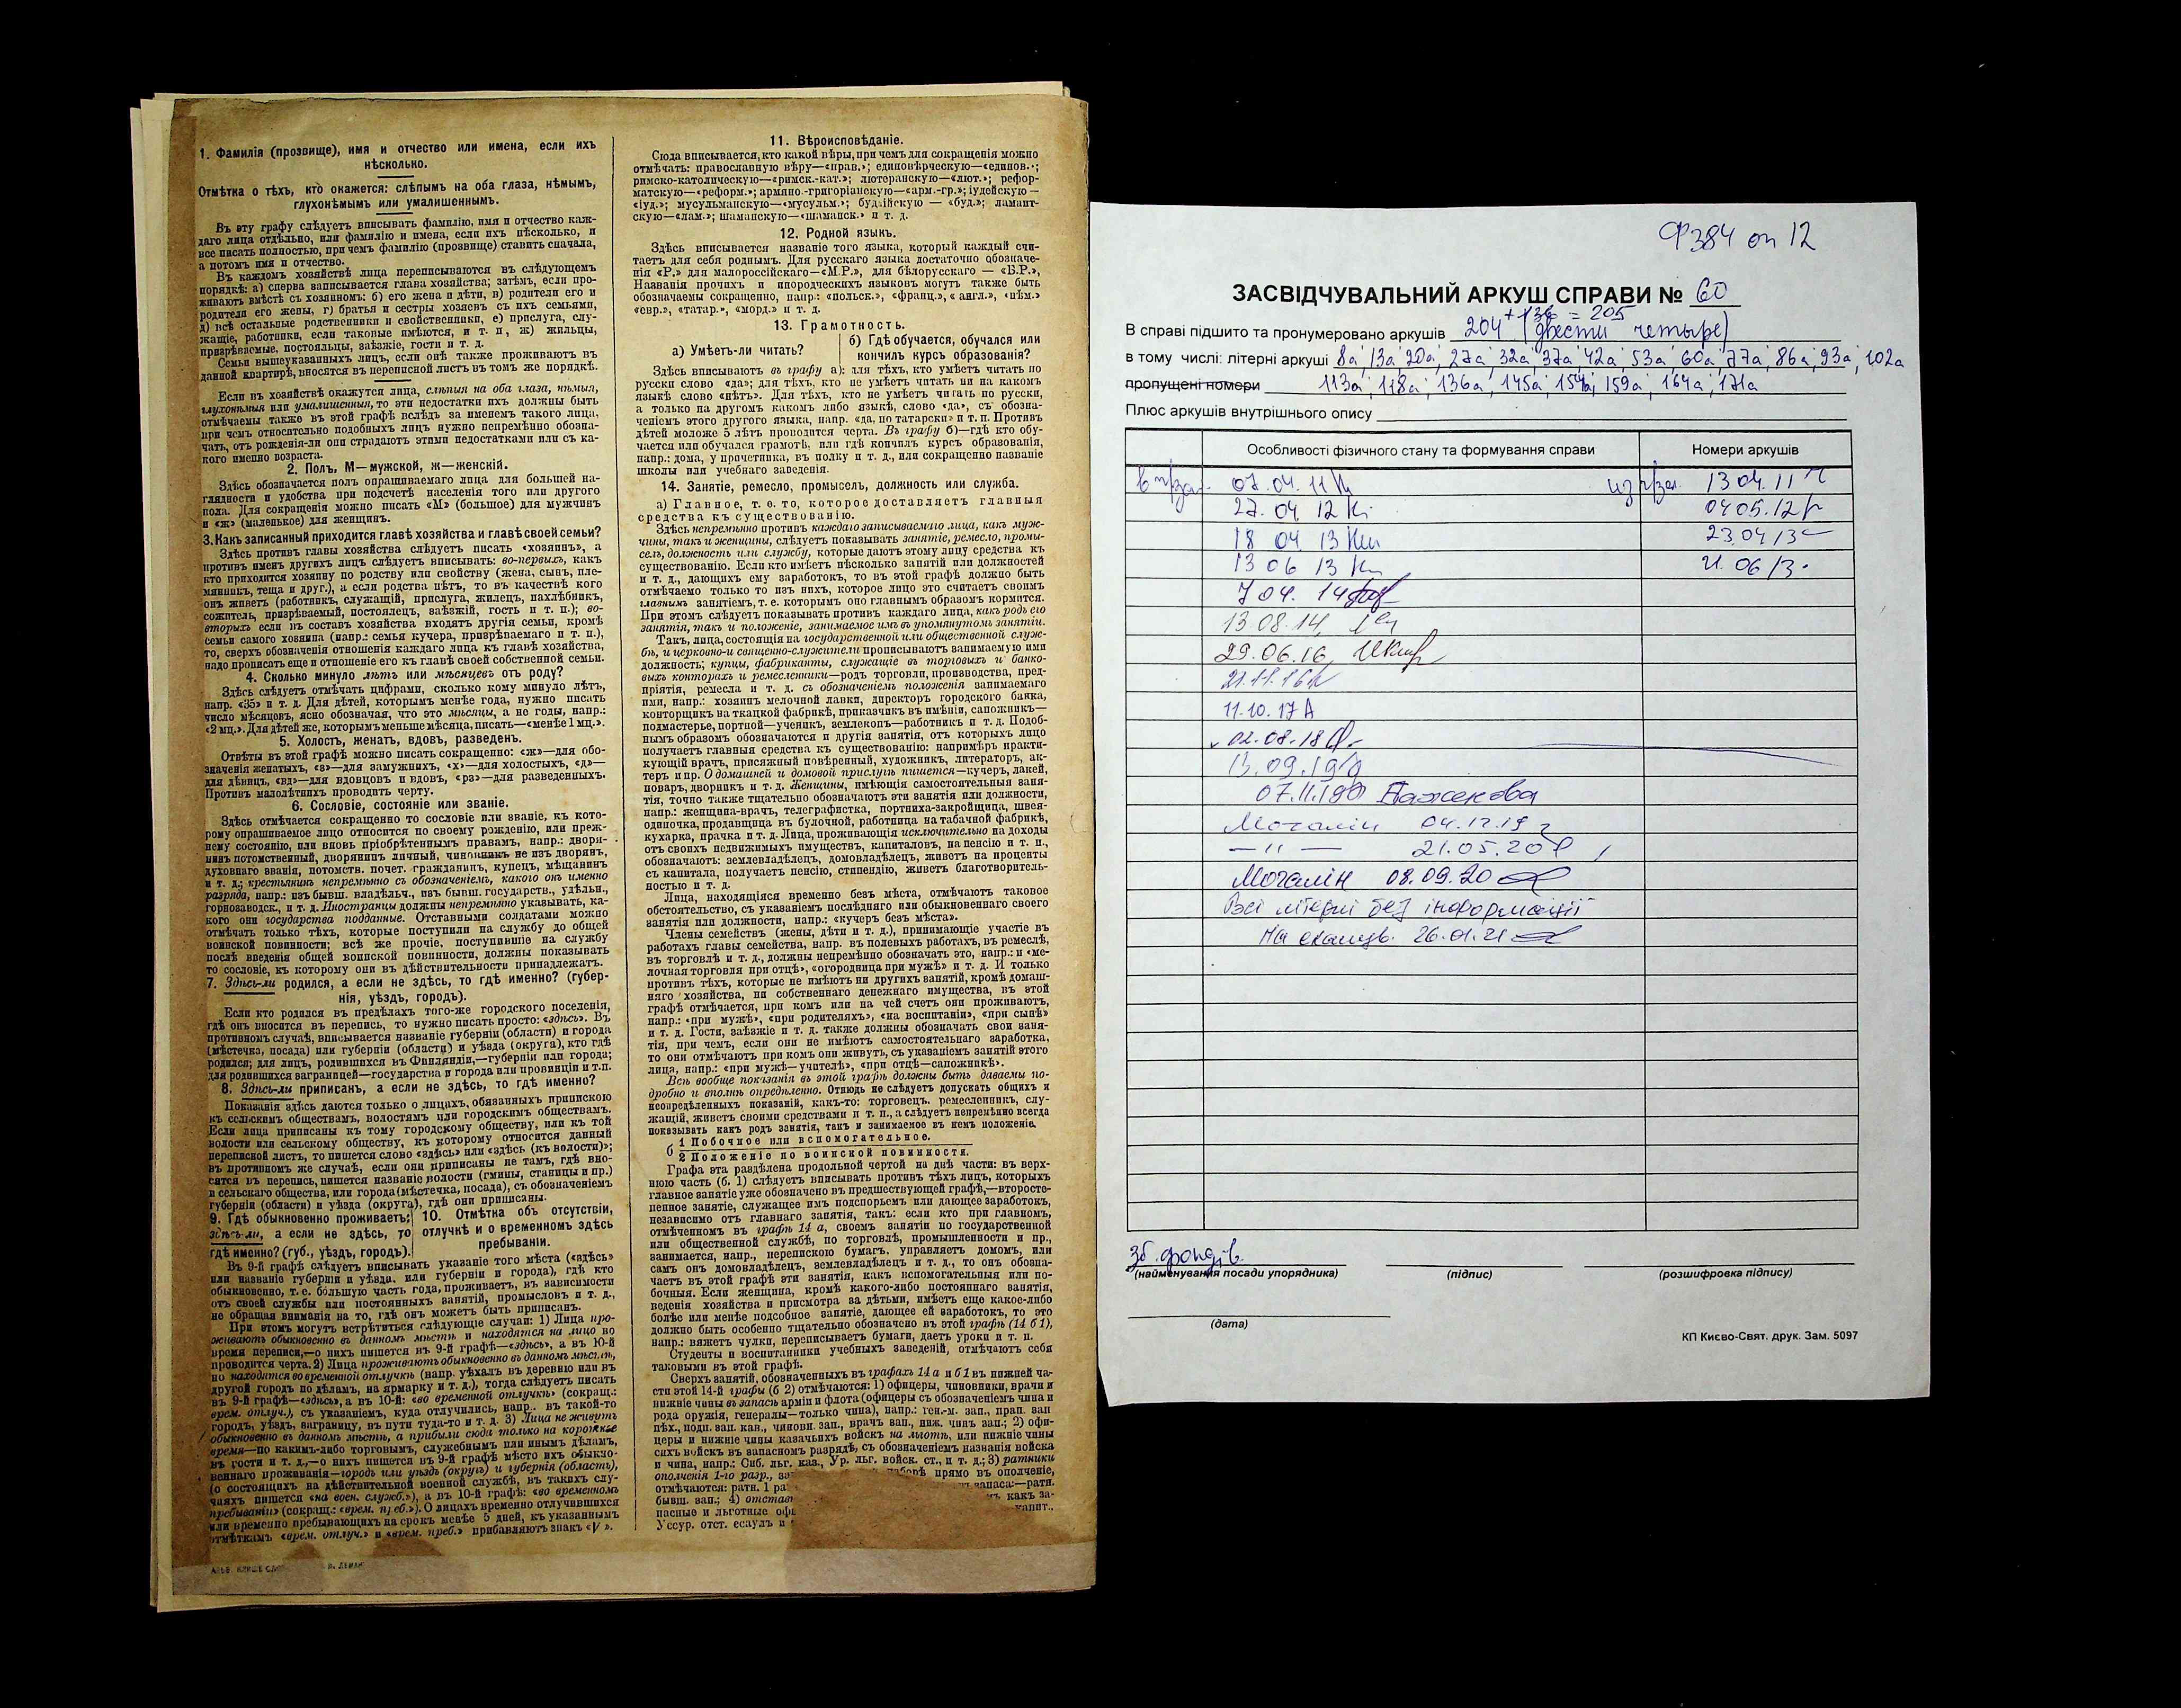 1. Фамилія (прозвище), имя и отчество или имена, если ихъ
нѣсколько.
Отмѣтка о тѣхъ, кто окажется: слѣпымъ на оба глаза, нѣмымъ,
глухонѣмымъ или умалишеннымъ.
Въ эту графу слѣдуетъ вписывать фамилію, имя и отчество каж-
даго лица отдѣльно, или фамилію и имена, если ихъ нѣсколько, и
все писать полностью, при чемъ фамилію (прозвище) ставить сначала,
а потомъ имя и отчество.
Въ каждомъ хозяйствѣ лица переписываются въ слѣдующемъ
порядкѣ: а) сперва записывается глава хозяйства; затѣмъ, если про-
живаютъ вмѣстѣ съ хозяиномъ: б) его жена и дѣти, в) родители его и
родители его жены, г) братья и сестры хозяевъ съ ихъ семьями,
д) всѣ остальные родственники и свойственники, е) прислуга, слу-
жащіе, работники, если таковые имѣются, и т. п., ж) жильцы,
призрѣваемые, постояльцы, заѣзжіе, гости и т. д.
Семьи вышеуказанныхъ лицъ, если онѣ также проживаютъ въ
данной квартирѣ, вносятся въ переписной листъ въ томъ же порядкѣ.
Если въ хозяйствѣ окажутся лица, слѣпыя на оба глаза, нѣмыя,
глухонѣмыя или умалишенныя, то эти недостатки ихъ должны быть
отмѣчаемы также въ этой графѣ вслѣдъ за именемъ такого лица,
при чемъ относительно подобныхъ лицъ нужно непремѣнно обозна-
чать, отъ рожденія-ли они страдаютъ этими недостатками или съ ка-
кого именно возраста.
2. Полъ. М—мужской, ж—женскій.
Здѣсь обозначается полъ опрашиваемаго лица для большей на-
глядности и удобства при подсчетѣ населенія того или другого
пола. Для сокращенія можно писать «М» (большое) для мужчинъ
и «ж» (маленькое) для женщинъ.
3. Какъ записанный приходится главѣ хозяйства и главѣ своей семьи?
Здѣсь противъ главы хозяйства слѣдуетъ писать «хозяинъ», а
противъ именъ другихъ лицъ слѣдуетъ вписывать: во-первыхъ, какъ
кто приходится хозяину по родству или свойству (жена, сынъ, пле-
мянникъ, теща и друг.), а если родства нѣтъ, то въ качествѣ кого
онъ живетъ (работникъ, служащій, прислуга, жилецъ, нахлѣбникъ,
сожитель, призрѣваемый, постоялецъ, заѣзжій, гость и т. п.); во-
вторыхъ если въ составъ хозяйства входятъ другія семьи, кромѣ
семьи самого хозяина (напр.: семья кучера, призрѣваемаго и т. п.),
то, сверхъ обозначенія отношенія каждаго лица къ главѣ хозяйства,
надо прописать еще и отношеніе его къ главѣ своей собственной семьи.
4. Сколько минуло лѣтъ или мѣсяцевъ отъ роду?
Здѣсь слѣдуетъ отмѣчать цифрами, сколько кому минуло лѣтъ,
напр. «35» и т. д. Для дѣтей, которымъ менѣе года, нужно писать
число мѣсяцевъ, ясно обозначая, что это мѣсяцы, а не годы, напр.:
«2 мц.». Для дѣтей же, которымъ меньше мѣсяца, писать—«менѣе 1 мц.».
5. Холостъ, женатъ, вдовъ, разведенъ.
Отвѣты въ этой графѣ можно писать сокращенно: «ж»—для обо-
значенія женатыхъ, «з»—для замужнихъ, «х»—для холостыхъ, «д»—
для дѣвицъ, «вд»—для вдовцовъ и вдовъ, «рз»—для разведенныхъ.
Противъ малолѣтнихъ проводить черту.
6. Сословіе, состояніе или званіе.
Здѣсь отмѣчается сокращенно то сословіе или званіе, къ кото-
рому опрашиваемое лицо относится по своему рожденію, или преж-
нему состоянію, или вновь пріобрѣтеннымъ правамъ, напр.: дворя-
нинъ потомственный, дворянинъ личный, чиновникъ не изъ дворянъ,
духовнаго званія, потомств. почет. гражданинъ, купецъ, мѣщанинъ
и т. д.; крестьянинъ непремѣнно съ обозначеніемъ, какого онъ именно
разряда, напр.: изъ бывш. владѣльч., изъ бывш. государств., удѣльн.,
горнозаводск., и т. д. Иностранцы должны непремѣнно указывать, ка-
кого они государства подданные. Отставными солдатами можно
отмѣчать только тѣхъ, которые поступили на службу до общей
воинской повинности; всѣ же прочіе, поступившіе на службу
послѣ введенія общей воинской повинности, должны показывать
то сословіе, къ которому они въ дѣйствительности принадлежатъ.
7. Здѣсь-ли родился, а если не здѣсь, то гдѣ именно? (губер-
нія, уѣздъ, городъ).
Если кто родился въ предѣлахъ того-же городского поселенія,
гдѣ онъ вносится въ перепись, то нужно писать просто: «здѣсь». Въ
противномъ случаѣ, вписывается названіе губерніи (области) и города
(мѣстечка, посада) или губерніи (области) и уѣзда (округа), кто гдѣ
родился; для лицъ, родившихся въ Финляндіи,—губерніи или города;
для родившихся заграницей—государства и города или провинціи и т.п.
8. Здѣсь-ли приписанъ, а если не здѣсь, то гдѣ именно?
Показанія здѣсь даются только о лицахъ, обязанныхъ припискою
къ сельскимъ обществамъ, волостямъ или городскимъ обществамъ.
Если лица приписаны къ тому городскому обществу, или къ той
волости или сельскому обществу, къ которому относится данный
переписной листъ, то пишется слово «здѣсь» или «здѣсь (къ волости)»;
въ противномъ же случаѣ, если они приписаны не тамъ, гдѣ вно-
сятся въ перепись, пишется названіе волости (гмины, станицы и пр.)
и сельскаго общества, или города (мѣстечка, посада), съ обозначеніемъ
губерніи (области) и уѣзда (округа), гдѣ они приписаны.
9. Гдѣ обыкновенно проживаетъ:
здѣсь-ли, а если не здѣсь, то
гдѣ именно? (губ., уѣздъ, городъ).
10. Отмѣтка объ отсутствіи,
отлучкѣ и о временномъ здѣсь
пребываніи.
Въ 9-й графѣ слѣдуетъ вписывать указаніе того мѣста («здѣсь»
или названіе губерніи и уѣзда. или губерніи и города), гдѣ кто
обыкновенно, т. е. большую часть года, проживаетъ, въ зависимости
отъ своей службы или постоянныхъ занятій, промысловъ и т. д.,
не обращая вниманія на то, гдѣ онъ можетъ быть приписанъ.
При этомъ могутъ встрѣтиться слѣдующіе случаи: 1) Лица про-
живаютъ обыкновенно въ данномъ мѣстѣ и находятся на лицо во
время переписи,—о нихъ пишется въ 9-й графѣ—«здѣсь», а въ 10-й
проводится черта. 2) Лица проживаютъ обыкновенно въ данномъ мѣстѣ,
но находятся во временной отлучкѣ (напр. уѣхалъ въ деревню или въ
другой городъ по дѣламъ, на ярмарку и т. д.), тогда слѣдуетъ писать
въ 9-й графѣ—«здѣсь», а въ 10-й: «во временной отлучкѣ» (сокращ.:
врем. отлуч.), съ указаніемъ, куда отлучились, напр.. въ такой-то
городъ, уѣздъ, заграницу, въ пути туда-то и т. д. 3) Лица не живутъ
обыкновенно въ данномъ мѣстѣ, а прибыли сюда только на короткое
время—по какимъ-либо торговымъ, служебнымъ или инымъ дѣламъ,
въ гости и т. д.,—о нихъ пишется въ 9-й графѣ мѣсто ихъ обыкно-
веннаго проживанія—городъ или уѣздъ (округъ) и губернія (область),
(о состоящихъ на дѣйствительной военной службѣ, въ такихъ слу-
чаяхъ пишется «на воен. служб.»), а въ 10-й графѣ: «во временномъ
пребываніи» (сокращ.: «врем. преб.»). О лицахъ временно отлучившихся
или временно пребывающихъ на срокъ менѣе 5 дней, къ указаннымъ
отмѣткамъ «врем. отлуч.» и «врем. преб.» прибавляютъ знакъ «V».
11. Вѣроисповѣданіе.
Сюда вписывается, кто какой вѣры, при чемъ для сокращенія можно
отмѣчать: православную вѣру—«прав.»; единовѣрческую—«единов.»;
римско-католическую—«римск.-кат.»; лютеранскую—«лют.»; рефор-
матскую—«реформ.»; армяно.-григоріанскую—«арм.-гр.»; іудейскую—
«іуд.»; мусульманскую—«мусульм.»; буддійскую — «буд.»; ламаит-
скую—«лам.»; шаманскую—«шаманск.» и т. д.
12. Родной языкъ.
Здѣсь вписывается названіе того языка, который каждый счи-
таетъ для себя роднымъ. Для русскаго языка достаточно обозначе-
нія «Р.» для малороссійскаго—«М.Р.», для бѣлорусскаго — «Б.Р.»,
Названія прочихъ и инородческихъ языковъ могутъ также быть
обозначаемы сокращенно, напр.: «польск.», «франц.», « англ.», «нѣм.»
«евр.», «татар.», «морд.» и т. д.
13. Грамотность.
а) Умѣетъ-ли читать?
б) Гдѣ обучается, обучался или
кончилъ курсъ образованія?
Здѣсь вписываютъ въ графу а): для тѣхъ, кто умѣетъ читать по
русски слово «да»; для тѣхъ, кто не умѣетъ читать ни на какомъ
языкѣ слово «нѣтъ». Для тѣхъ, кто не умѣетъ читать по русски,
а только на другомъ какомъ либо языкѣ, слово «да», съ обозна-
ченіемъ этого другого языка, напр. «да, по татарски» и т. п. Противъ
дѣтей моложе 5 лѣтъ проводится черта. Въ графу б)—гдѣ кто обу-
чается или обучался грамотѣ, или гдѣ кончилъ курсъ образованія,
напр.: дома, у причетника, въ полку и т. д., или сокращенно названіе
школы или учебнаго заведенія.
14. Занятіе, ремесло, промыселъ, должность или служба.
а) Главное, т. е. то, которое доставляетъ главныя
средства къ существованію.
Здѣсь непремѣнно противъ каждаго записываемаго лица, какъ муж-
чины, такъ и женщины, слѣдуетъ показывать занятіе, ремесло, промы-
селъ, должность или службу, которые даютъ этому лицу средства къ
существованію. Если кто имѣетъ нѣсколько занятій или должностей
и т. д., дающихъ ему заработокъ, то въ этой графѣ должно быть
отмѣчаемо только то изъ нихъ, которое лицо это считаетъ своимъ
главнымъ занятіемъ, т. е. которымъ оно главнымъ образомъ кормится.
При этомъ слѣдуетъ показывать противъ каждаго лица, какъ родъ его
занятія, такъ и положеніе, занимаемое имъ въ упомянутомъ занятіи.
Такъ, лица, состоящія на государственной или общественной служ-
бѣ, и церковно-и священно-служители прописываютъ занимаемую ими
должность; купцы, фабриканты, служащіе въ торговыхъ и банко-
выхъ конторахъ и ремесленники—родъ торговли, производства, пред-
пріятія, ремесла и т. д. съ обозначеніемъ положенія занимаемаго
ими, напр.: хозяинъ мелочной лавки, директоръ городского банка,
конторщикъ на ткацкой фабрикѣ, приказчикъ въ имѣніи, сапожникъ—
подмастерье, портной—ученикъ, землекопъ—работникъ и т. д. Подоб-
нымъ образомъ обозначаются и другія занятія, отъ которыхъ лицо
получаетъ главныя средства къ существованію: напримѣръ практи-
кующій врачъ, присяжный повѣренный, художникъ, литераторъ, ак-
теръ и пр. О домашней и домовой прислугѣ пишется—кучеръ, лакей,
поваръ, дворникъ и т. д. Женщины, имѣющія самостоятельныя заня-
тія, точно также тщательно обозначаютъ эти занятія или должности,
напр.: женщина-врачъ, телеграфистка, портниха-закройщица, швея-
одиночка, продавщица въ булочной, работница на табачной фабрикѣ,
кухарка, прачка и т. д. Лица, проживающія исключительно на доходы
отъ своихъ недвижимыхъ имуществъ, капиталовъ, на пенсію и т. п.,
обозначаютъ: землевладѣлецъ, домовладѣлецъ, живетъ на проценты
съ капитала, получаетъ пенсію, стипендію, живетъ благотворитель-
ностью и т. д.
Лица, находящіяся временно безъ мѣста, отмѣчаютъ таковое
обстоятельство, съ указаніемъ послѣдняго или обыкновеннаго своего
занятія или должности, напр.: «кучеръ безъ мѣста».
Члены семействъ (жены, дѣти и т. д.), принимающіе участіе въ
работахъ главы семейства, напр. въ полевыхъ работахъ, въ ремеслѣ,
въ торговлѣ и т. д., должны непремѣнно обозначать это, напр.: и «ме-
лочная торговля при отцѣ», «огородница при мужѣ» и т. д. И только
противъ тѣхъ, которые не имѣютъ ни другихъ занятій, кромѣ домаш-
няго хозяйства, ни собственнаго денежнаго имущества, въ этой
графѣ отмѣчается, при комъ или на чей счетъ они проживаютъ,
напр.: «при мужѣ», «при родителяхъ», «на воспитаніи», «при сынѣ»
и т. д. Гости, заѣзжіе и т. д. также должны обозначать свои заня-
тія, при чемъ, если они не имѣютъ самостоятельнаго заработка,
то они отмѣчаютъ при комъ они живутъ, съ указаніемъ занятій этого
лица, напр.: «при мужѣ—учителѣ», «при отцѣ—сапожникѣ».
Всѣ вообще показанія въ этой графѣ должны быть даваемы по-
дробно и вполнѣ опредѣленно. Отнюдь не слѣдуетъ допускать общихъ и
неопредѣленныхъ показаній, какъ-то: торговецъ. ремесленникъ, слу-
жащій, живетъ своими средствами и т. п., а слѣдуетъ непремѣнно всегда
показывать какъ родъ занятія, такъ и занимаемое въ немъ положеніе.
б 1 Побочное или вспомогательное.
2 Положеніе по воинской повинности.
Графа эта раздѣлена продольной чертой на двѣ части: въ верх-
нюю часть (б. 1) слѣдуетъ вписывать противъ тѣхъ лицъ, которыхъ
главное занятіе уже обозначено въ предшествующей графѣ,—второсте-
пенное занятіе, служащее имъ подспорьемъ или дающее заработокъ,
независимо отъ главнаго занятія, такъ: если кто при главномъ,
отмѣченномъ въ графѣ 14 а, своемъ занятіи по государственной
или общественной службѣ, по торговлѣ, промышленности и пр.,
занимается, напр., перепискою бумагъ, управляетъ домомъ, или
самъ онъ домовладѣлецъ, землевладѣлецъ и т. д., то онъ обозна-
чаетъ въ этой графѣ эти занятія, какъ вспомогательныя или по-
бочныя. Если женщина, кромѣ какого-либо постояннаго занятія,
веденія хозяйства и присмотра за дѣтьми, имѣетъ еще какое-либо
болѣе или менѣе подсобное занятіе, дающее ей заработокъ, то это
должно быть особенно тщательно обозначено въ этой графѣ (14 б 1),
напр.: вяжетъ чулки, переписываетъ бумаги, даетъ уроки и т. п.
Студенты и воспитанники учебныхъ заведеній, отмѣчаютъ себя
таковыми въ этой графѣ.
Сверхъ занятій, обозначенныхъ въ графахъ 14 а и б 1 въ нижней ча-
сти этой 14-й графы (б 2) отмѣчаются: 1) офицеры, чиновники, врачи и
нижніе чины въ запасѣ арміи и флота (офицеры съ обозначеніемъ чина и
рода оружія, генералы—только чина), напр.: ген.-м. зап., прап. зап
пѣх., подп. зап. кав., чиновн. зап., врачъ зап., ниж. чинъ зап.; 2) офи-
церы и нижніе чины казачьихъ войскъ на льготѣ, или нижніе чины
сихъ войскъ въ запасномъ разрядѣ, съ обозначеніемъ названія войска
и чина, напр.: Сиб. льг. каз., Ур. льг. войск. ст., и т. д.; 3) ратники
ополченія 1-го разр., за прямо въ ополченіе,
отмѣчаются: ратн. 1 ра запаса:—ратн.
бывш. зап.; 4) отстав какъ за-
пасные и льготные офи
Уссур. отст. есаулъ и
Ф 384 оп 12
ЗАСВІДЧУВАЛЬНИЙ АРКУШ СПРАВИ № 60
В справі підшито та пронумеровано аркушів 204 + 136 = 205 (двести четыре)
в тому числі: літерні аркуші 8а; 13а; 20а; 27а; 32а; 37а; 42а; 53а; 60а; 77а; 86а; 93а; 102а
пропущені номери 113а; 118а; 136а; 145а; 154а; 159а; 164а; 171а
Плюс аркушів внутрішнього опису
Особливості фізичного стану та формування справи Номери аркушів
в ч/зал. 07.04.11 из ч/зал. 13 04.11
27.04.12 04 05.12
18 04 13 23.04 13
13 06 13 21.06 13
7 04. 14
13.08.14,
29.06.16,
21.11.16
11.10.17
02.08.18
13.09.19
07.11.19 Бажекова
Мочалін 04.12.19
—〃— 21.05.20
Мочалін 08.09.20
Всі літерні без інформації
На сканув. 26.01.21
зб. фондів.
(найменування посади упорядника) (підпис) (розшифровка підпису)
(дата)
КП Києво-Свят. друк. Зам. 5097